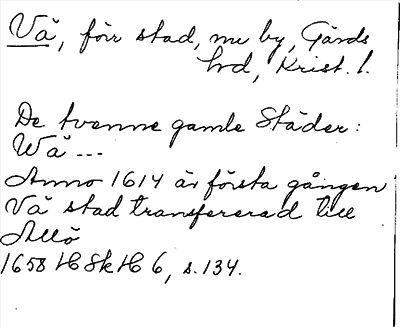 Vä, förr stad, nu by, Gärds
hrd, Krist. l.
De tvenne gamle Städer:
Wä ---
Anno 1614 är första gången
Vä stad transfererad till
Allö
1658 HSkH 6, s. 134.